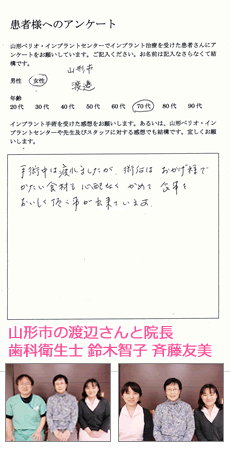 患者様へのアンケート
山形ペリオ・インプラントセンターでインプラント治療を受けた患者さんにア
ンケートをお願いしています。ご記入ください。お名前は記入なさらなくて結
構です。
山形市
男性 女性 渡邉
年齢
20代 30代 40代 50代 60代 70代 80代 90代
インプラント手術を受けた感想をお願いします。あるいは、山形ペリオ・イン
プラントセンターや先生及びスタッフに対する感想でも結構です。宜しくお願
いします。
手術中は疲れましたが、術后は おかげ様で
かたい食材も 心配なく かめて 食事を
おいしく頂く事が出来ています。
山形市の渡辺さんと院長
歯科衛生士 鈴木智子 斉藤友美